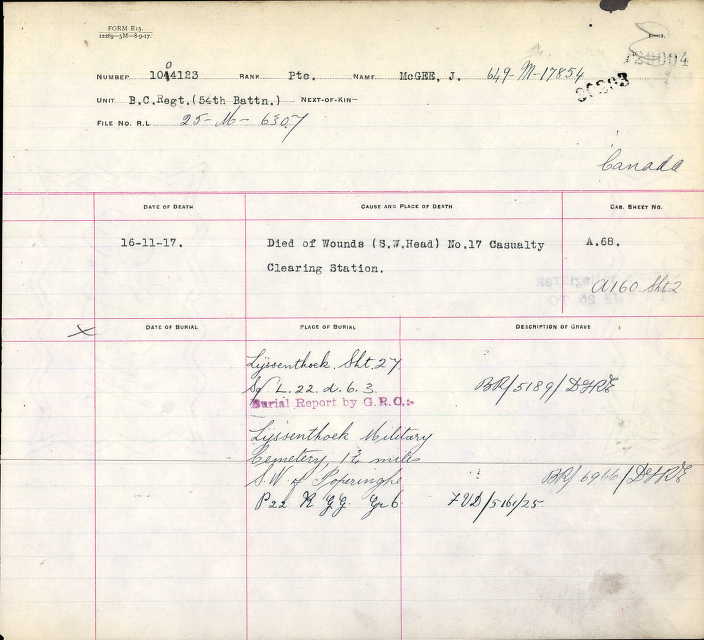 FORM R15.
12289—5M—8-9-17.
NUMBER 1004123 RANK Pte. NAME McGEE, J. 649-M-17854
UNIT B.C.Regt.(54th Battn.) NEXT-OF-KIN—
FILE NO. R.L. 25-M-6307
Canada
DATE OF DEATH CAUSE AND PLACE OF DEATH CAS. SHEET NO.
16-11-17. Died of Wounds (S.W.Head) No.17 Casualty A.68.
Clearing Station.
A160 Sht 2
X DATE OF BURIAL PLACE OF BURIAL DESCRIPTION OF GRAVE
Lijssenthoek. Sht. 27
Sq L. 22. d. 6. 3 BR/5189/DGRE
Burial Report by G.R.C.:-
Lijssenthoek Military
Cemetery, 1¾ miles
S.W of Poperinghe BR/6966/DGRE
P22 R GG Gr 6 FVD/5161/25